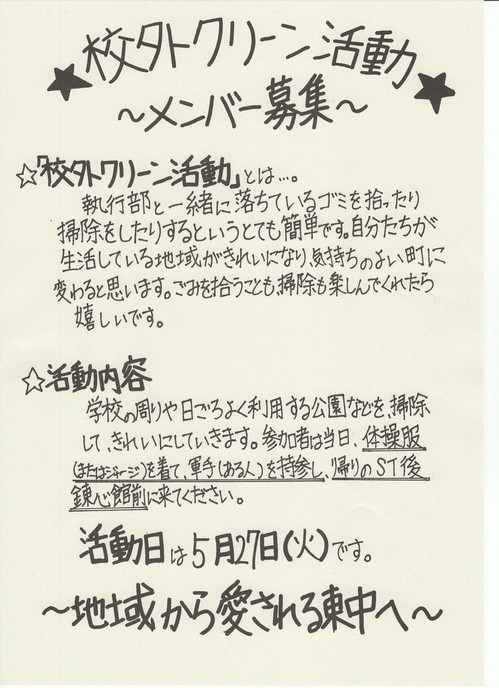 ★校外クリーン活動★
~メンバー募集~
☆「校外クリーン活動」とは…。
執行部と一緒に落ちているゴミを拾ったり
掃除をしたりするというとても簡単です。自分たちが
生活している地域がきれいになり、気持ちのよい町に
変わると思います。ごみを拾うことも、掃除も楽しんでくれたら
嬉しいです。
☆活動内容
学校の周りや日ごろよく利用する公園などを、掃除
して、きれいにしていきます。参加者は当日、体操服
(またはジャージ)を着て、軍手(ある人)を持参し、帰りのST後
錬心館前に来てください。
活動日は5月27日(火)です。
~地域から愛される東中へ~